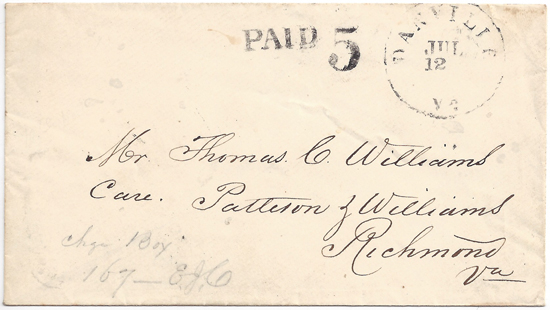 PAID 5
DANVILLE
JUL
12
Va
Mr Thomas. C. Williams
Care. Patteson & Williams
Richmond
Va
chge Box
167 — E.J.C